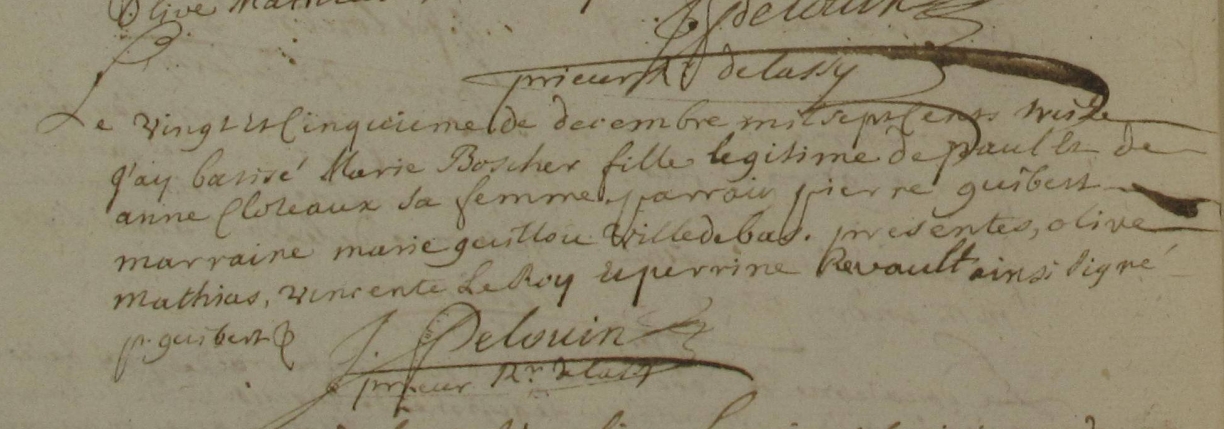 Olive Mathias
J Delouin
prieur Rr delassy
Le vingt et cinquieme de decembre mil sept cents
j'ay batisé Marie Boscher fille legitime de paul et de
anne Cloteaux sa femme parrain pierre guibert
marraine marie guillou villedebas. presentes, olive
mathias, vincente Le Roy et perrine Revault ainsi signé
p. guibert
J. Delouin
prieur Rr delassy